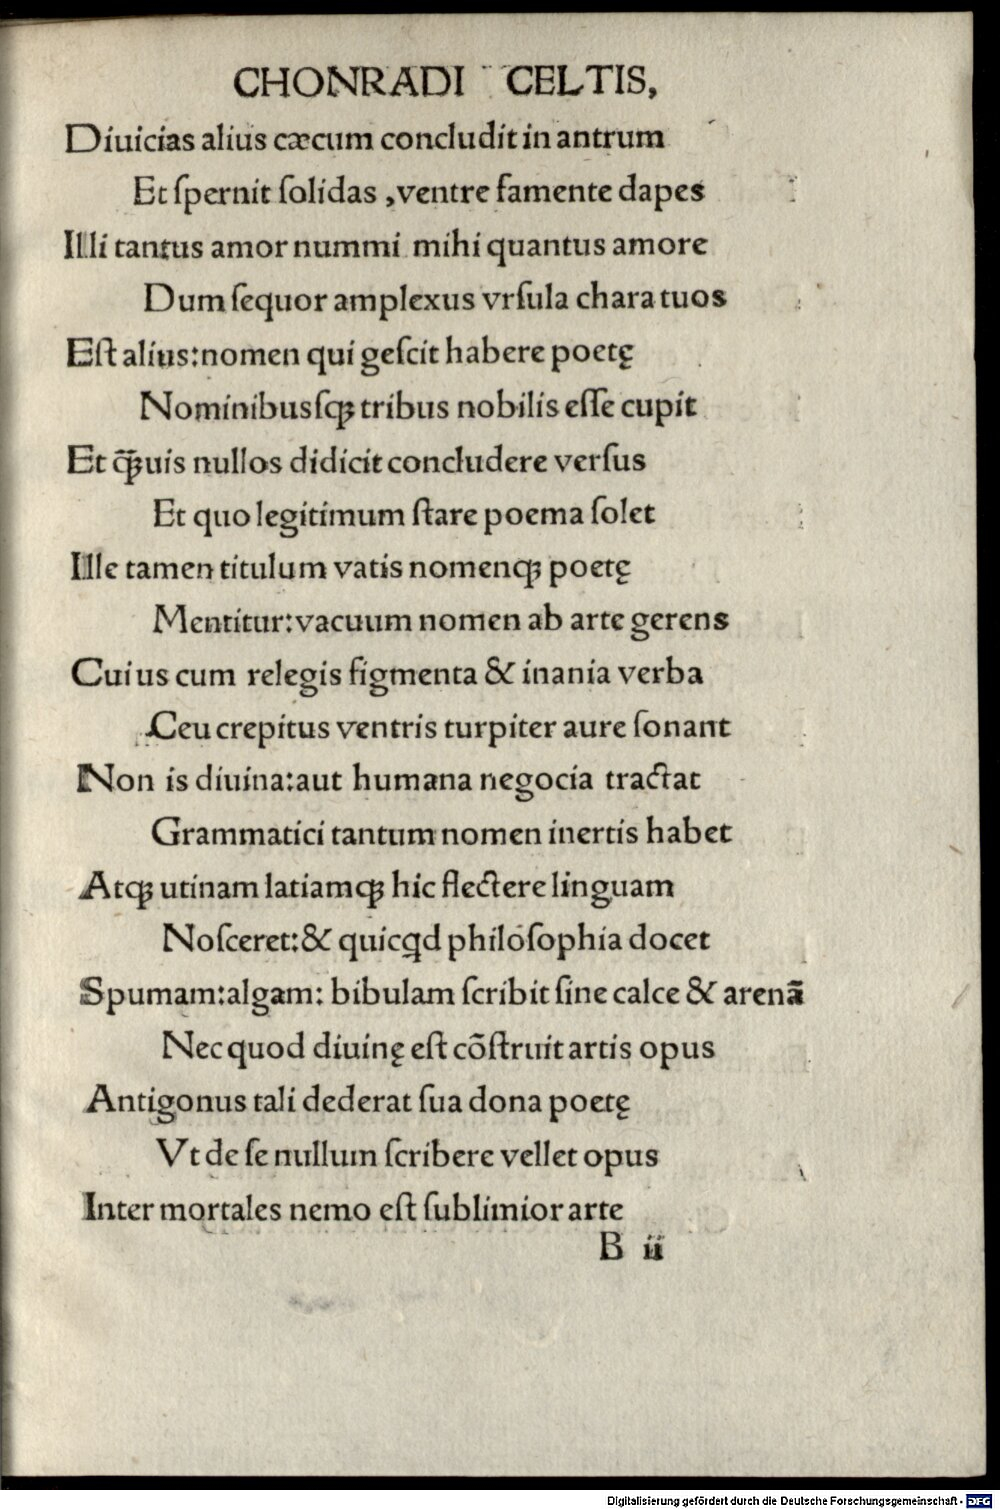 CHONRADI CELTIS,
Diuicias alius cæcum concludit in antrum
Et ſpernit ſolidas ,ventre famente dapes
Illi tantus amor nummi mihi quantus amore
Dum ſequor amplexus vrſula chara tuos
Eſt alius:nomen qui geſcit habere poetę
Nominibuſqꝫ tribus nobilis eſſe cupit
Et qꝫ̄uis nullos didicit concludere verſus
Et quo legitimum ſtare poema ſolet
Ille tamen titulum vatis nomenqꝫ poetę
Mentitur:vacuum nomen ab arte gerens
Cuius cum relegis figmenta & inania verba
Ceu crepitus ventris turpiter aure ſonant
Non is diuina:aut humana negocia tractat
Grammatici tantum nomen inertis habet
Atqꝫ utinam latiamqꝫ hic flectere linguam
Noſceret:& quicqd philoſophia docet
Spumam:algam: bibulam ſcribit ſine calce & arenā
Nec quod diuinę eſt cōſtruit artis opus
Antigonus tali dederat ſua dona poetę
Vt de ſe nullum ſcribere vellet opus
Inter mortales nemo eſt ſublimior arte
B ii
Digitalisierung gefördert durch die Deutsche Forschungsgemeinschaft - DFG